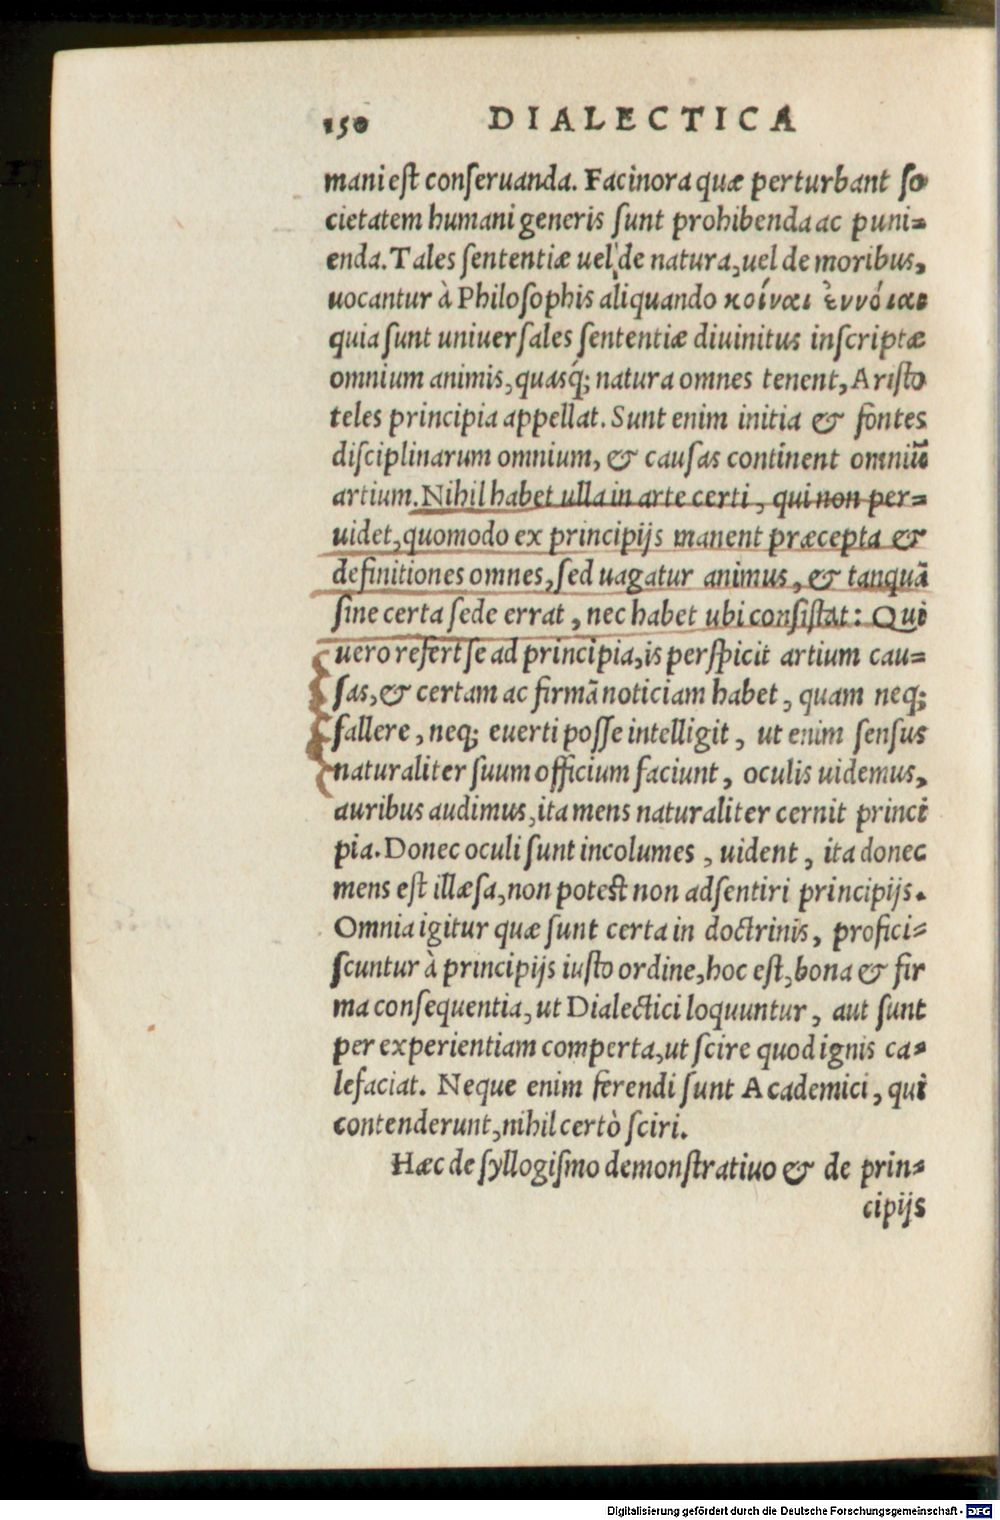 150 DIALECTICA
mani est conseruanda. Facinora quæ perturbant so
cietatem humani generis sunt prohibenda ac puni-
enda. Tales sententiæ uel de natura, uel de moribus,
uocantur à Philosophis aliquando κοίναι ἐννόιαι
quia sunt uniuersales sententiæ diuinitus inscriptæ
omnium animis, quasq́; natura omnes tenent, Aristo
teles principia appellat. Sunt enim initia & fontes
disciplinarum omnium, & causas continent omniũ
artium. Nihil habet ulla in arte certi, qui non per-
uidet, quomodo ex principijs manent præcepta &
definitiones omnes, sed uagatur animus, & tanquã
sine certa sede errat, nec habet ubi consistat: Qui
uero refert se ad principia, is perspicit artium cau-
sas, & certam ac firmã noticiam habet, quam neq;
fallere, neq; euerti posse intelligit, ut enim sensus
naturaliter suum officium faciunt, oculis uidemus,
auribus audimus, ita mens naturaliter cernit princi
pia. Donec oculi sunt incolumes, uident, ita donec
mens est illæsa, non potest non adsentiri principijs.
Omnia igitur quæ sunt certa in doctrinis, profici-
scuntur à principijs iusto ordine, hoc est, bona & fir
ma consequentia, ut Dialectici loquuntur, aut sunt
per experientiam comperta, ut scire quod ignis ca-
lefaciat. Neque enim ferendi sunt Academici, qui
contenderunt, nihil certò sciri.
Hæc de syllogismo demonstratiuo & de prin-
cipijs
Digitalisierung gefördert durch die Deutsche Forschungsgemeinschaft - DFG